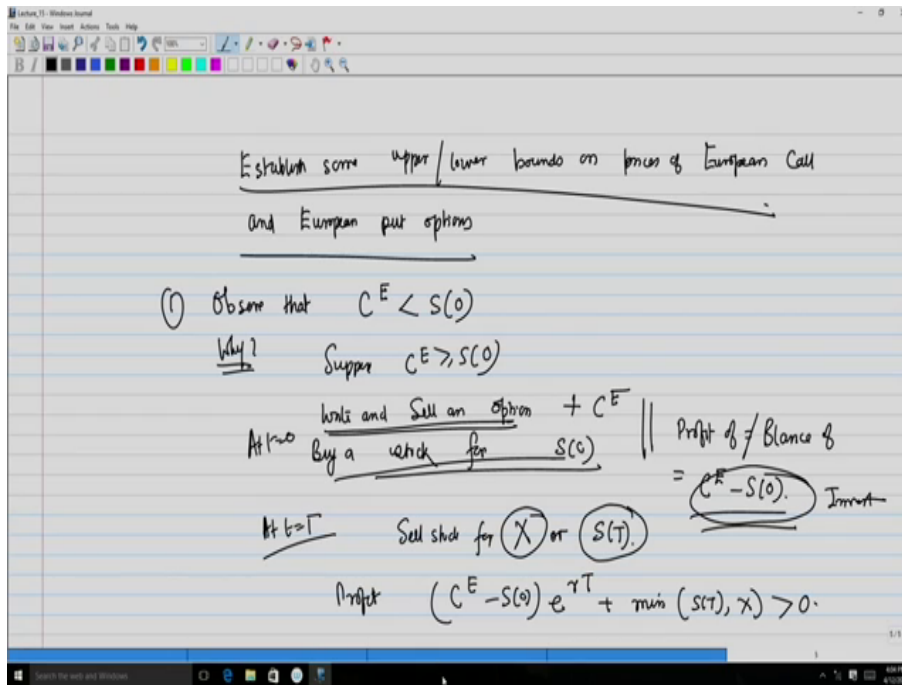 Lecture_15 - Windows Journal
File Edit View Insert Actions Tools Help
Establish some upper/lower bounds on prices of European Call
and European put options
① Observe that C^E < S(0)
Why? Suppose C^E ≥ S(0)
At t=0 Write and Sell an option + C^E
Buy a stock for S(0)
Profit of / Balance of
= C^E - S(0). Invest
At t=T Sell stock for X or S(T).
Profit (C^E - S(0)) e^{rT} + min (S(T), X) > 0.
1/1
Search the web and Windows